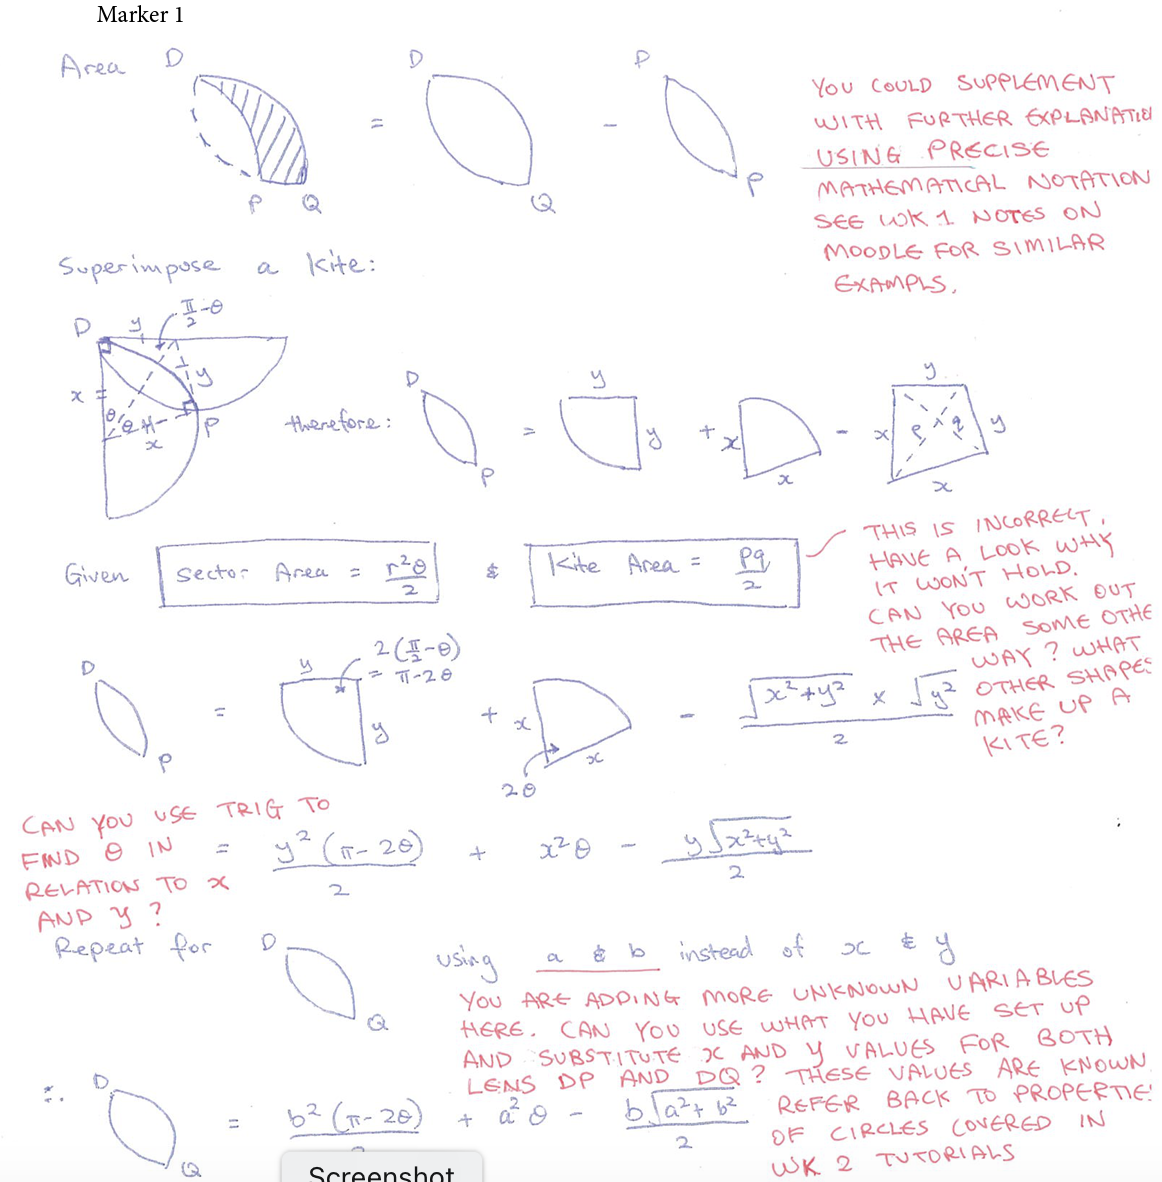 Marker 1
Area D = D - P
P Q Q P
YOU COULD SUPPLEMENT
WITH FURTHER EXPLANATIO
USING PRECISE
MATHEMATICAL NOTATION
SEE WK 1 NOTES ON
MOODLE FOR SIMILAR
EXAMPLS.
Superimpose a Kite:
D y π/2-θ
x y
θ 2θ P
x
therefore: D P = y y + x x - x y p q y x
Given sector Area = r²θ/2 & Kite Area = pq/2
THIS IS INCORRECT,
HAVE A LOOK WHY
IT WON'T HOLD.
CAN YOU WORK OUT
THE AREA SOME OTHE
WAY? WHAT
OTHER SHAPES
MAKE UP A
KITE?
D P = y y 2(π/2-θ) = π-2θ + x x 2θ - √x²+y² × √y² / 2
CAN YOU USE TRIG TO
FIND θ IN
RELATION TO x
AND y?
= y²(π-2θ)/2 + x²θ - y√x²+y²/2
Repeat for D Q using a & b instead of x & y
YOU ARE ADDING MORE UNKNOWN VARIABLES
HERE. CAN YOU USE WHAT YOU HAVE SET UP
AND SUBSTITUTE x AND y VALUES FOR BOTH
LENS DP AND DQ? THESE VALUES ARE KNOWN
REFER BACK TO PROPERTIE
OF CIRCLES COVERED IN
WK 2 TUTORIALS
∴ D Q = b²(π-2θ)/2 + a²θ - b√a²+b²/2
Screenshot